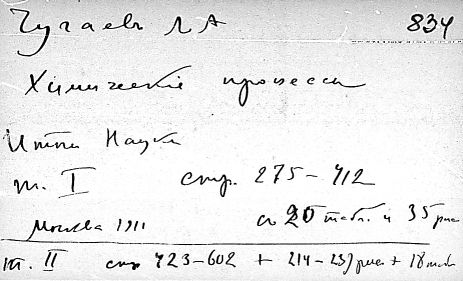 Чугаевъ Л А 834
Химическіе процессы
Итоги Науки
т. I стр. 275-412
Москва 1911 съ 20 табл. и 35 рис
т. II стр 423-602 + 214-237 рис + 18 табл